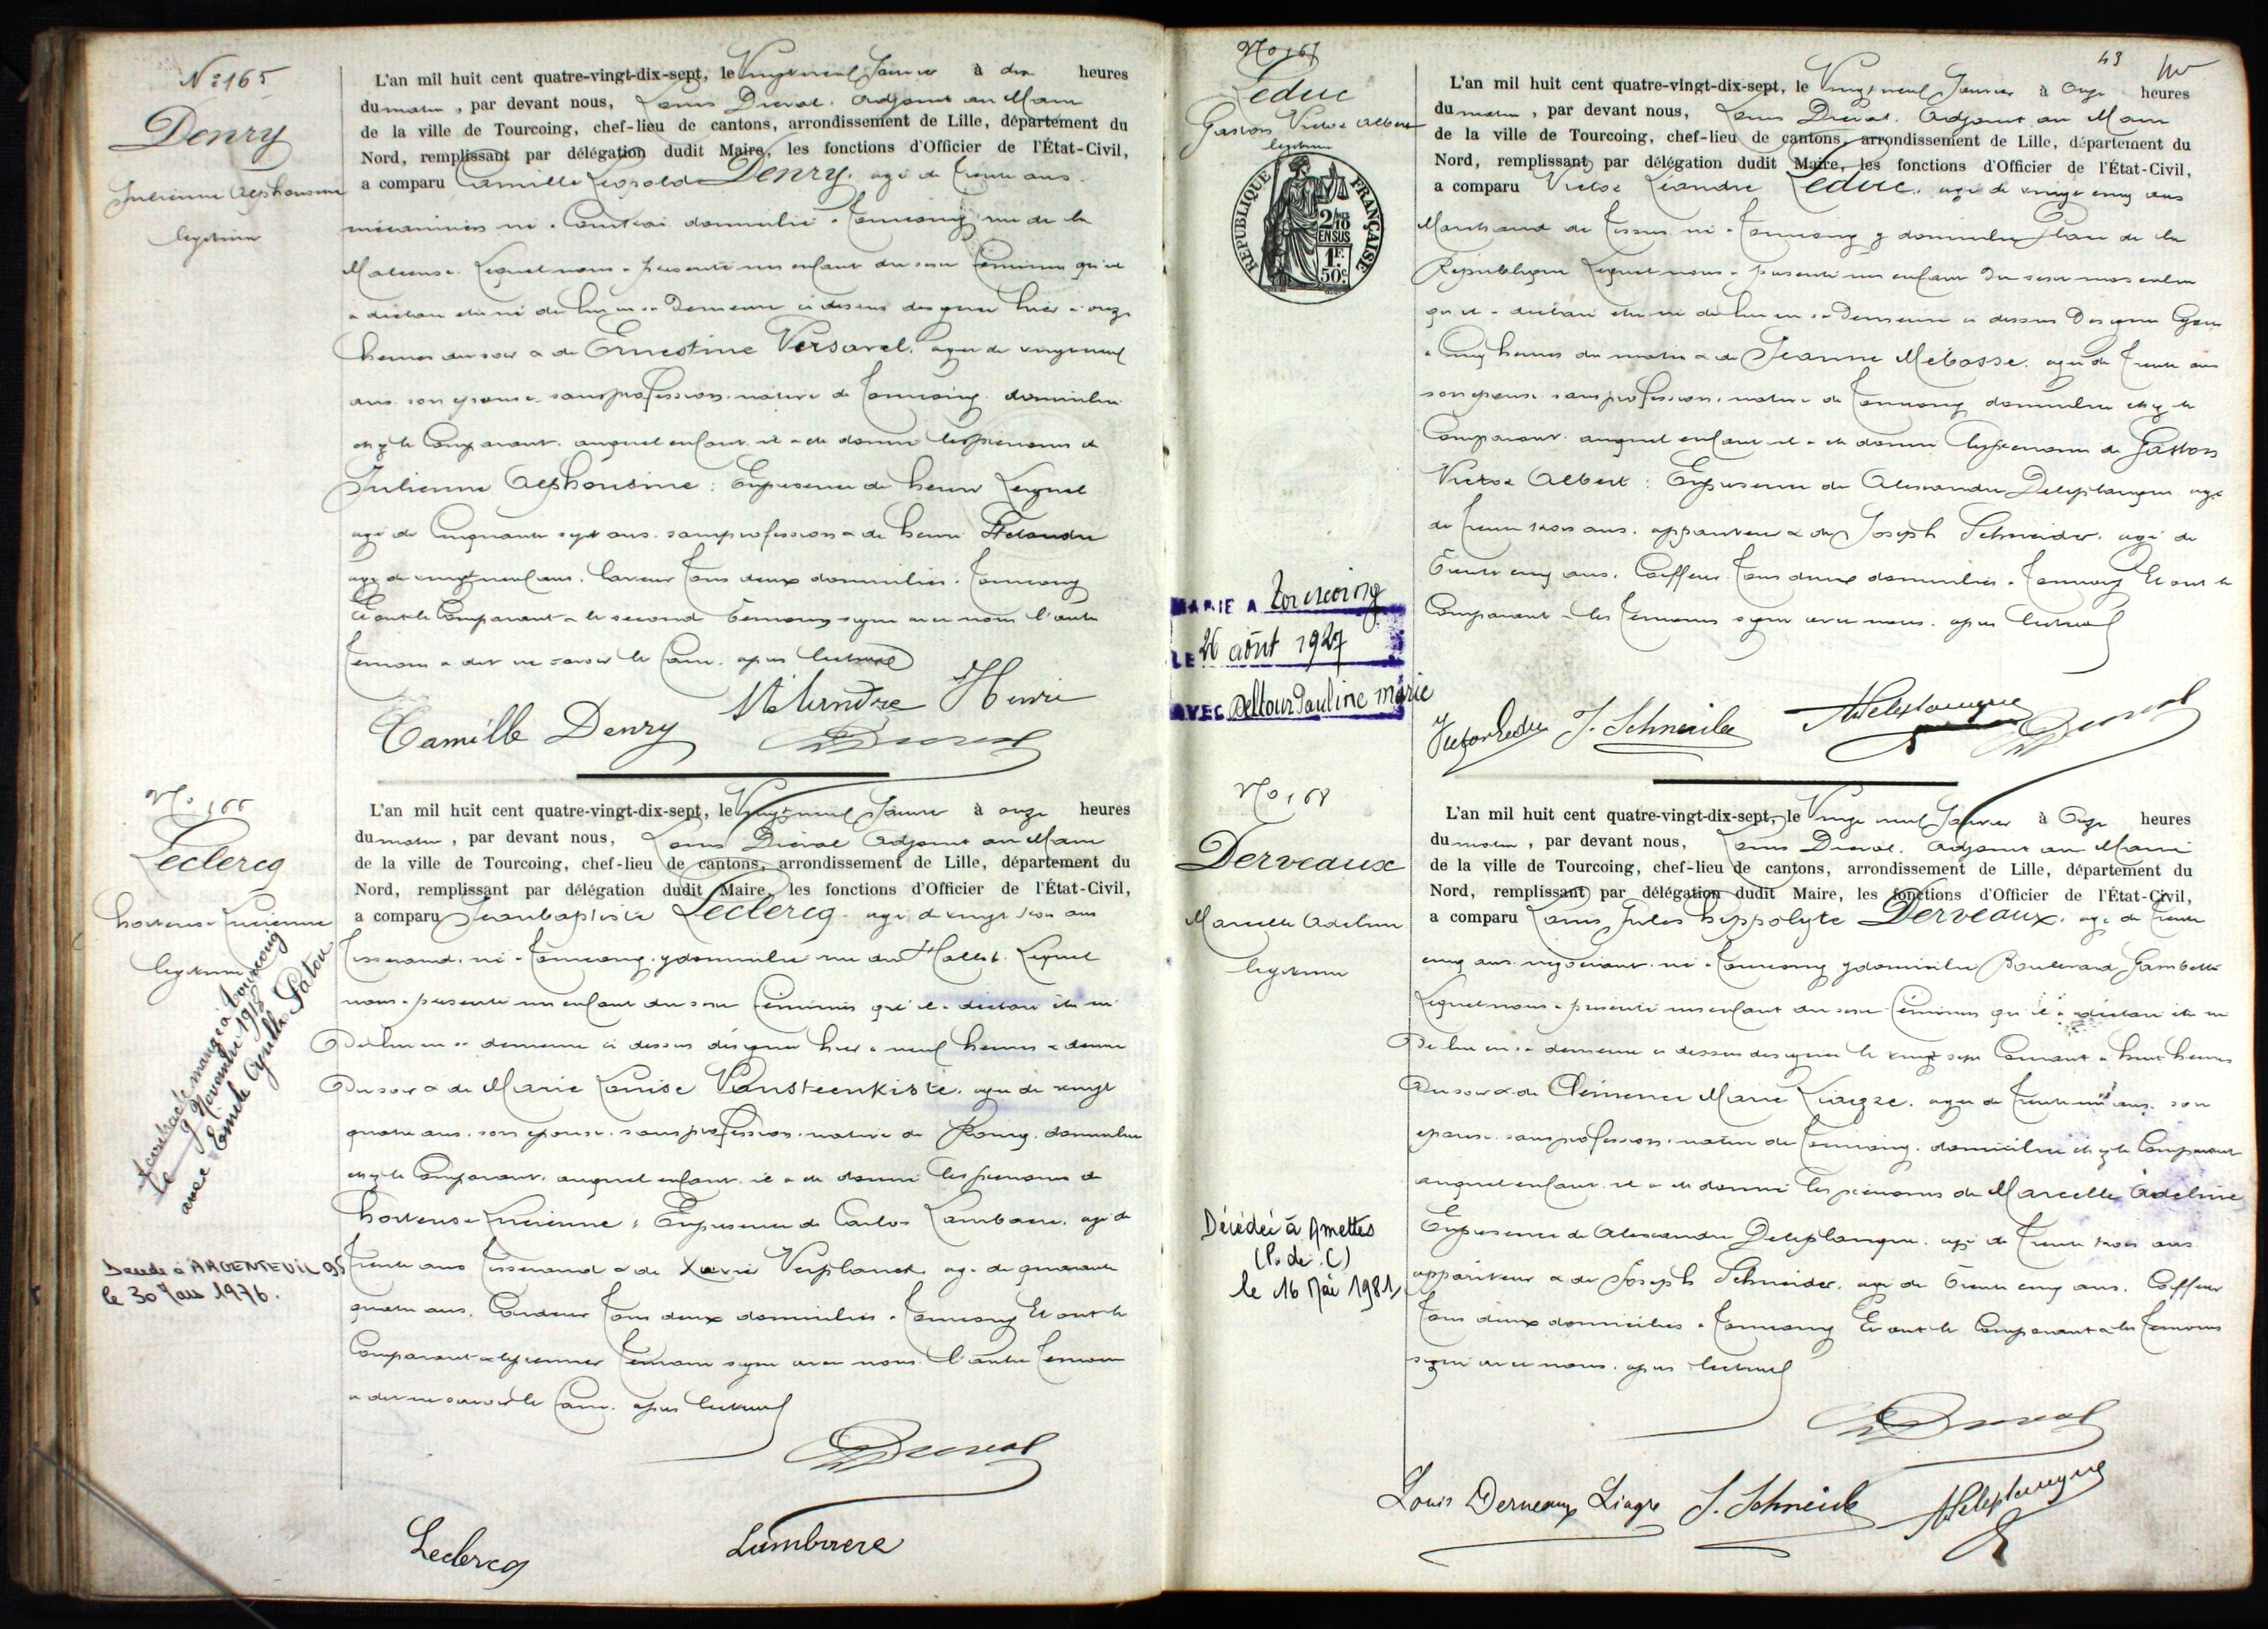 N° 165
Denry
Julienne Alphonsine
légitime
L'an mil huit cent quatre-vingt-dix-sept, le Vingt neuf Janvier à dix heures
du matin, par devant nous, Louis Duval. Adjoint au Maire
de la ville de Tourcoing, chef-lieu de cantons, arrondissement de Lille, département du
Nord, remplissant par délégation dudit Maire, les fonctions d'Officier de l'État-Civil,
a comparu Camille Léopold Denry, agé de trente ans
mécanicien né à Courtrai domicilié à Tourcoing rue de la
Malcense. Lequel nous a présenté un enfant du sexe féminin qu'il
a déclaré etre né de lui en sa demeure ci dessus designée hier à onze
heures du soir & de Ernestine Versavel, agée de vingt neuf
ans son épouse sans profession, native de Tourcoing domiciliée
chez le Comparant. auquel enfant il a été donné les prénoms de
Julienne Alphonsine : En présence de henri Lequel
agé de Cinquante sept ans. sans profession & de henri
agé de vingt neuf ans. laveur tous deux domiciliés à Tourcoing
Et ont le Comparant & le second témoins signé avec nous l'autre
témoin a dit ne savoir le faire. après lecture
Camille Denry Henri
Duval
N° 166
Leclercq
hortense Lucienne
légitime
A contracté mariage à Tourcoing
le 9 Novembre 1918
avec Emile Cyrille Patou
Décédé à ARGENTEUIL 95
le 30 Mars 1976.
L'an mil huit cent quatre-vingt-dix-sept, le Vingt neuf Janvier à onze heures
du matin, par devant nous, Louis Duval Adjoint au Maire
de la ville de Tourcoing, chef-lieu de cantons, arrondissement de Lille, département du
Nord, remplissant par délégation dudit Maire, les fonctions d'Officier de l'État-Civil,
a comparu Jean baptiste Leclercq. agé de vingt trois ans
Tisserand. né à Tourcoing. y domicilié rue du Hallot. Lequel
nous a présenté un enfant du sexe féminin qu'il a déclaré etre né
De lui en sa demeure ci dessus désignée hier à neuf heures & demie
Du soir & de Marie Louise Vansteenkiste. agée de vingt
quatre ans. son épouse. sans profession. native de Roncq. domiciliée
chez le Comparant. auquel enfant il a été donné les prénoms de
hortense Lucienne : En présence de Carlos Lambaere. agé de
trente ans tisserand & de Xavier Verplancke agé de quarante
quatre ans. Cordeur tous deux domiciliés à Tourcoing Et ont le
Comparant & le premier témoin signé avec nous. l'autre témoin
a dit ne savoir le faire. après lecture
Duval
Leclercq Lambaere
43
N° 167
Leduc
Gaston Victor Albert
légitime
RÉPUBLIQUE FRANÇAISE
2/10 MES
EN SUS
1F.
50c.
MARIE A Tourcoing
LE 26 août 1927
AVEC Deltour Pauline Marie
L'an mil huit cent quatre-vingt-dix-sept, le Vingt neuf Janvier à Onze heures
du matin, par devant nous, Louis Duval. Adjoint au Maire
de la ville de Tourcoing, chef-lieu de cantons, arrondissement de Lille, département du
Nord, remplissant par délégation dudit Maire, les fonctions d'Officier de l'État-Civil,
a comparu Victor Léandre Leduc, agé de vingt cinq ans
Marchand de tissus né à Tourcoing y domicilié Place de la
République Lequel nous a présenté un enfant du sexe masculin
qu'il a déclaré etre né de lui en sa Demeure ci dessus Designée
à Cinq heures du matin & de Jeanne Mébasse. agée de trente ans
son épouse. sans profession. native de Tourcoing domiciliée chez le
Comparant. auquel enfant il a été donné les prénoms de Gaston
Victor Albert : En présence de Alexandre Deleplanque agé
de trente trois ans. appariteur & de Joseph Schneider. agé de
trente cinq ans. Coiffeur. tous deux domiciliés à Tourcoing Et ont le
Comparant & les témoins signé avec nous. après lecture
Victor Leduc J. Schneider A Deleplanque Duval
N° 168
Derveaux
Marcelle Adeline
légitime
Décédée à Amettes
(P. de C)
le 16 Mai 1981
L'an mil huit cent quatre-vingt-dix-sept, le Vingt neuf Janvier à Onze heures
du matin, par devant nous, Louis Duval. Adjoint au Maire
de la ville de Tourcoing, chef-lieu de cantons, arrondissement de Lille, département du
Nord, remplissant par délégation dudit Maire, les fonctions d'Officier de l'État-Civil,
a comparu Louis Jules hippolyte Derveaux. agé de trente
cinq ans. négociant. né à Tourcoing y domicilié Boulevard Gambetta
Lequel nous a présenté un enfant du sexe féminin qu'il a déclaré etre né
De lui en sa demeure ci dessus designée le vingt sept Courant à huit heures
Du soir & de Clémence Marie Liagre. agée de trente un ans. son
épouse. sans profession. native de Tourcoing. domiciliée chez le Comparant
auquel enfant il a été donné les prénoms de Marcelle Adeline
En présence de Alexandre Deleplanque. agé de trente trois ans.
appariteur & de Joseph Schneider. agé de trente cinq ans. Coiffeur
tous deux domiciliés à Tourcoing Et ont le Comparant & les témoins
signé avec nous. après lecture
Duval
Louis Derveaux Liagre J. Schneider A Deleplanque